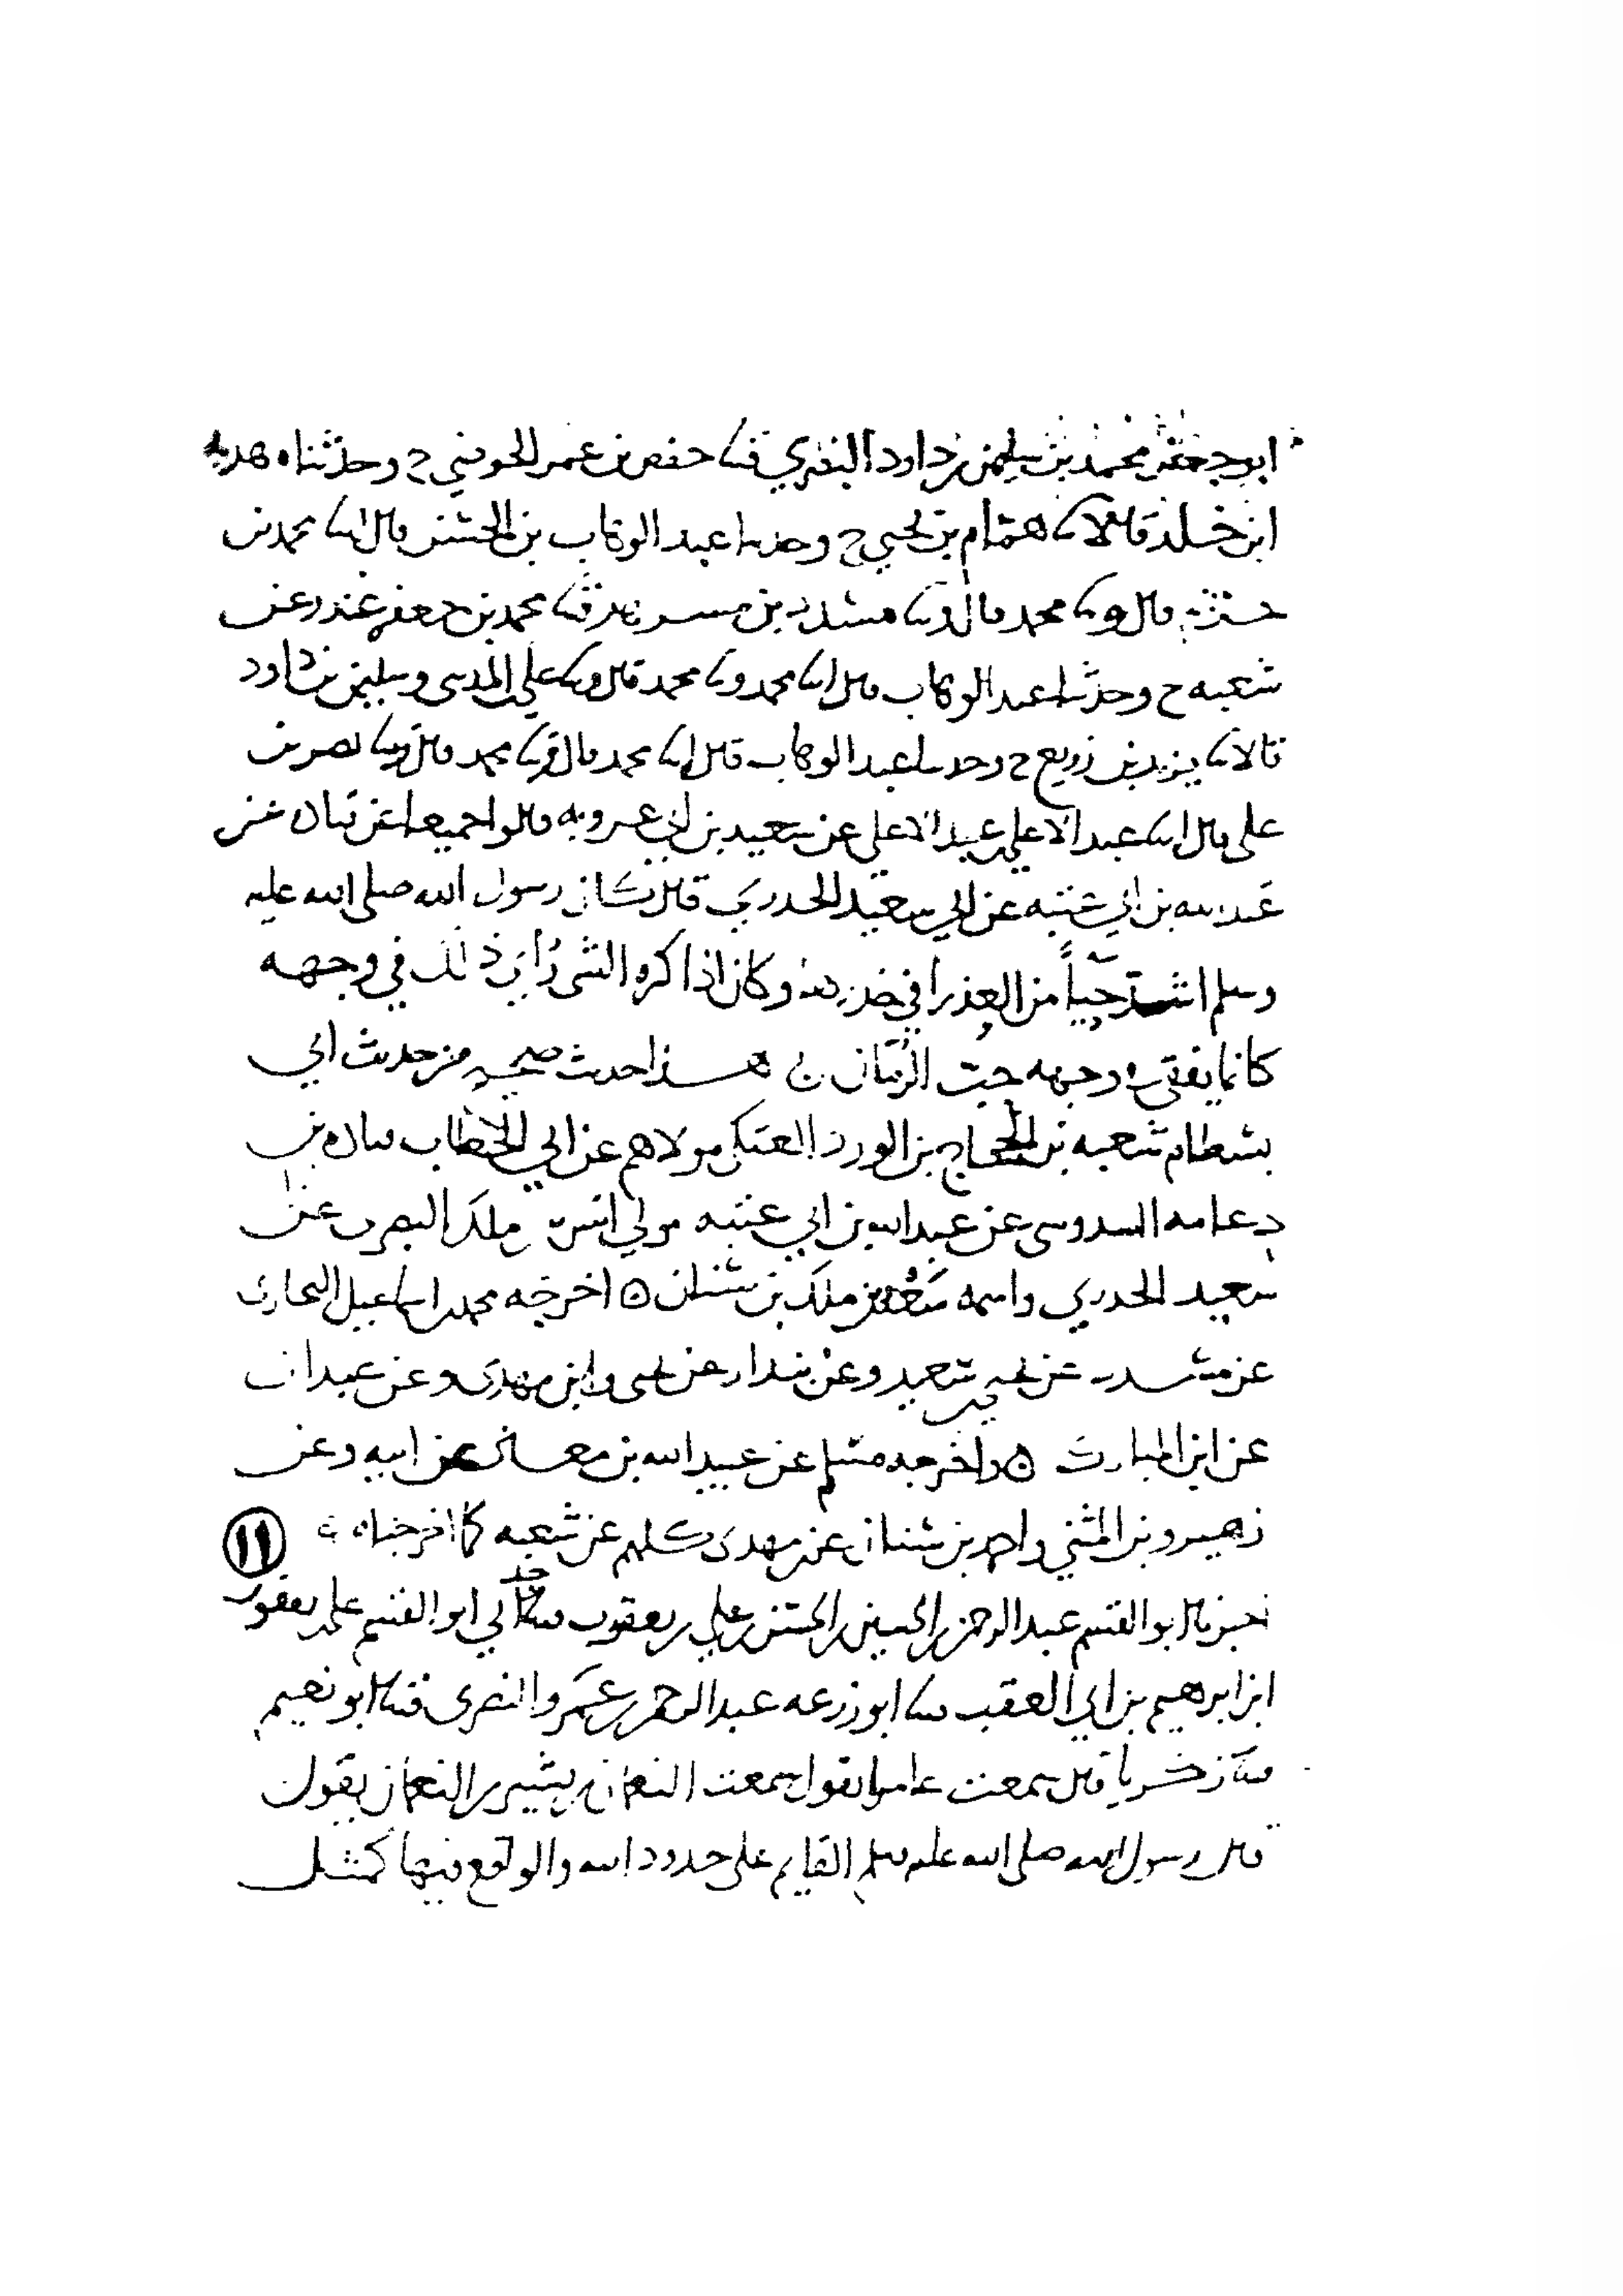 ابو جعفر محمد بن سليمن بن داود البغري ثنا حفص بن عمر الحوضي ح وحدثنا هدبة
ابن خلد قالا ثنا همام بن يحيي ح وحدثنا عبد الوهاب بن الحسن قال انا محمد بن
قال وثنا محمد قال وثنا مسدد بن مسرهد ثنا محمد بن جعفر غندر عن
شعبه ح وحدثنا عبد الوهاب قال انا محمد وثنا محمد قال وثنا علي المديني وسليمن بن داود
قالا ثنا يزيد بن زريع ح وحدثنا عبد الوهاب قال انا محمد قال وثنا محمد قال وثنا نصر بن
علي قال انا عبد الاعلي عبد الاعلي عن سعيد بن ابي عروبه قالوا جميعا عن قتادة عن
عبد الله بن ابي عتبه عن ابي سعيد الخدري قال كان رسول الله صلى الله عليه
وسلم اشد حياً من العذرا في خدرها وكان اذا كره الشي رُاي ذلك في وجهه
كانما يفقى في وجهه حب الرمان ۞ هذا حديث صحيح من حديث ابي
بسطام شعبه بن الحجاج بن الورد العتكي مولاهم عن ابي الخطاب قتاده بن
دعامه السدوسي عن عبد الله بن ابي عتبه مولي انس بن ملك البصري عن
سعيد الخدري واسمه سَعْد بن ملك بن سنان ۞ اخرجه محمد بن اسماعيل البخاري
عن مسدد عن يحيى بن سعيد وعن بندار عن يحيى وابن مهدي وعن عبدان
عن ابن المبارك ۞ واخرجه مسلم عن عبيد الله بن معاذ عن ابيه وعن
زهير وبن المثني واحمد بن سنان عن بن مهدي كلهم عن شعبه كما اخرجناه
١١
اخبرنا ابو القسم عبد الرحمن بن الحسين بن الحسن بن علي بن يعقوب ثنا جد ابي ابو القسم علي بن يعقوب
ابن ابرهيم بن ابي العقب ثنا ابو زرعه عبد الرحمن بن عمرو النصري ثنا ابو نعيم
ثنا زكريا قال سمعت عامرا يقول سمعت النعمان بن بشير بن النعمان يقول
قال رسول الله صلى الله عليه وسلم القايم على حدود الله والواقع فيها كمثل